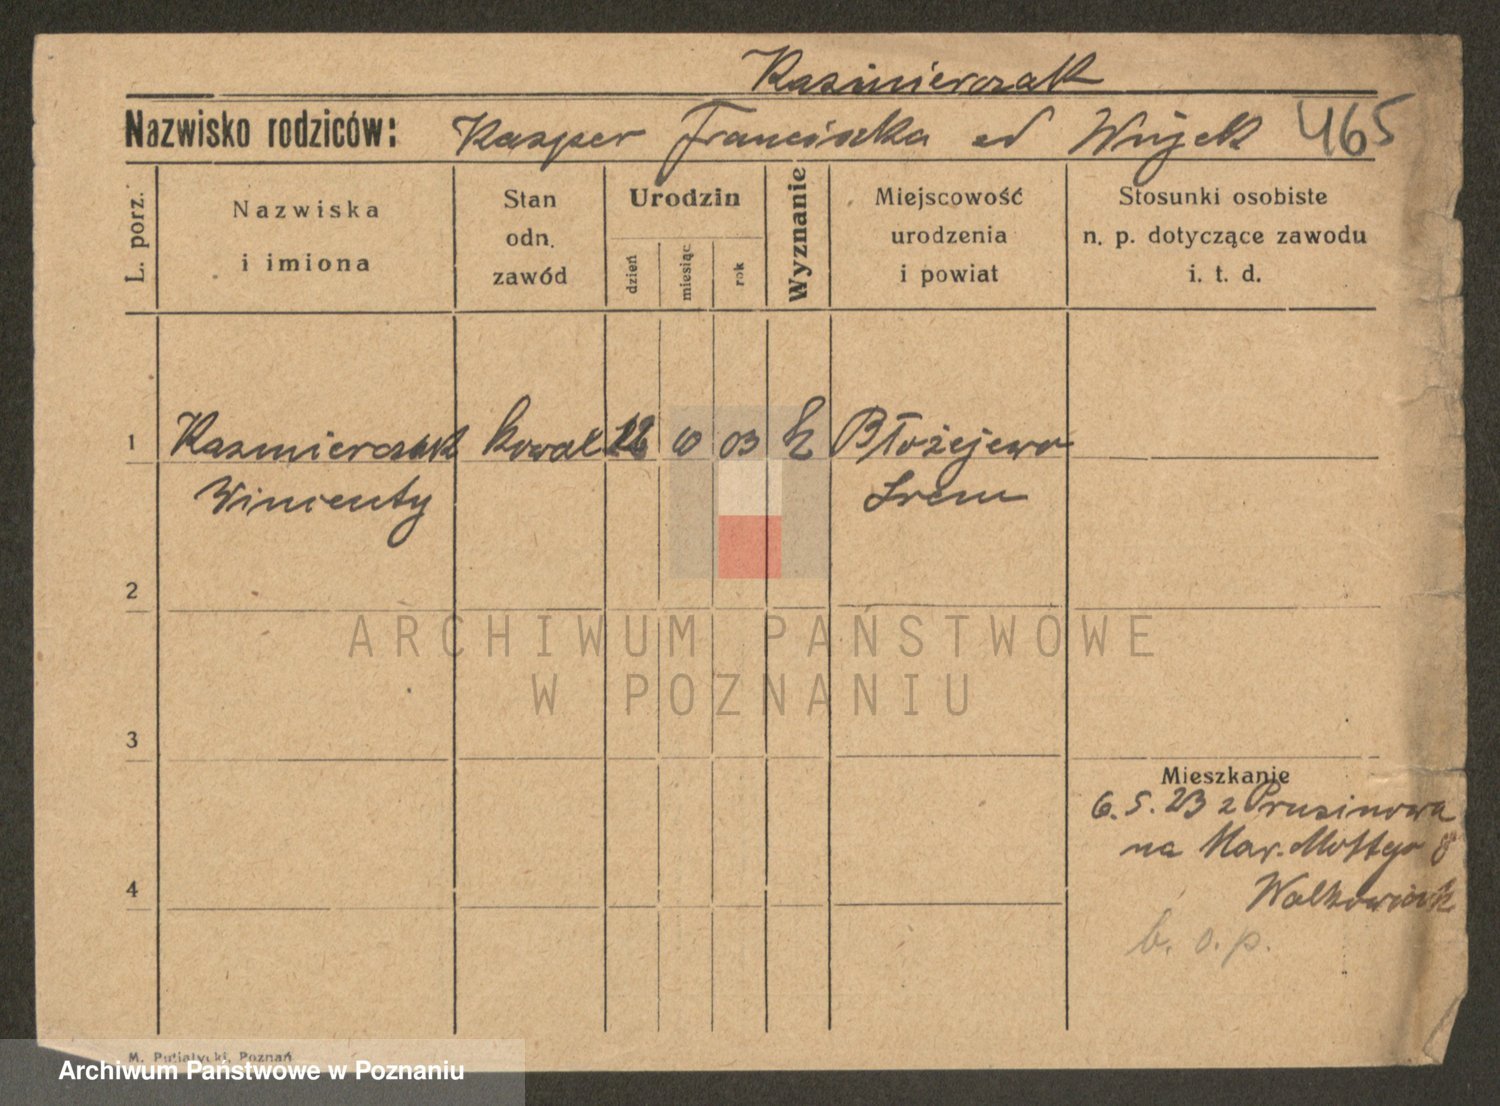 Kazimierczak
Nazwisko rodziców: Kasper Franciszka ed Wujek 465
L. porz.
Nazwiska
i imiona
Stan
odn.
zawód
Urodzin
dzień
miesiąc
rok
Wyznanie
Miejscowość
urodzenia
i powiat
Stosunki osobiste
n. p. dotyczące zawodu
i. t. d.
1 Kazmierczak kowal 10 03 k Błożejewo
Wincenty Srem
2
ARCHIWUM PAŃSTWOWE
W POZNANIU
3
Mieszkanie
6. 5. 23 z Prusinowa
na Mar. Mottego 8
4
Walkowiak
b. o. p.
M. Putiatycki, Poznań
Archiwum Państwowe w Poznaniu